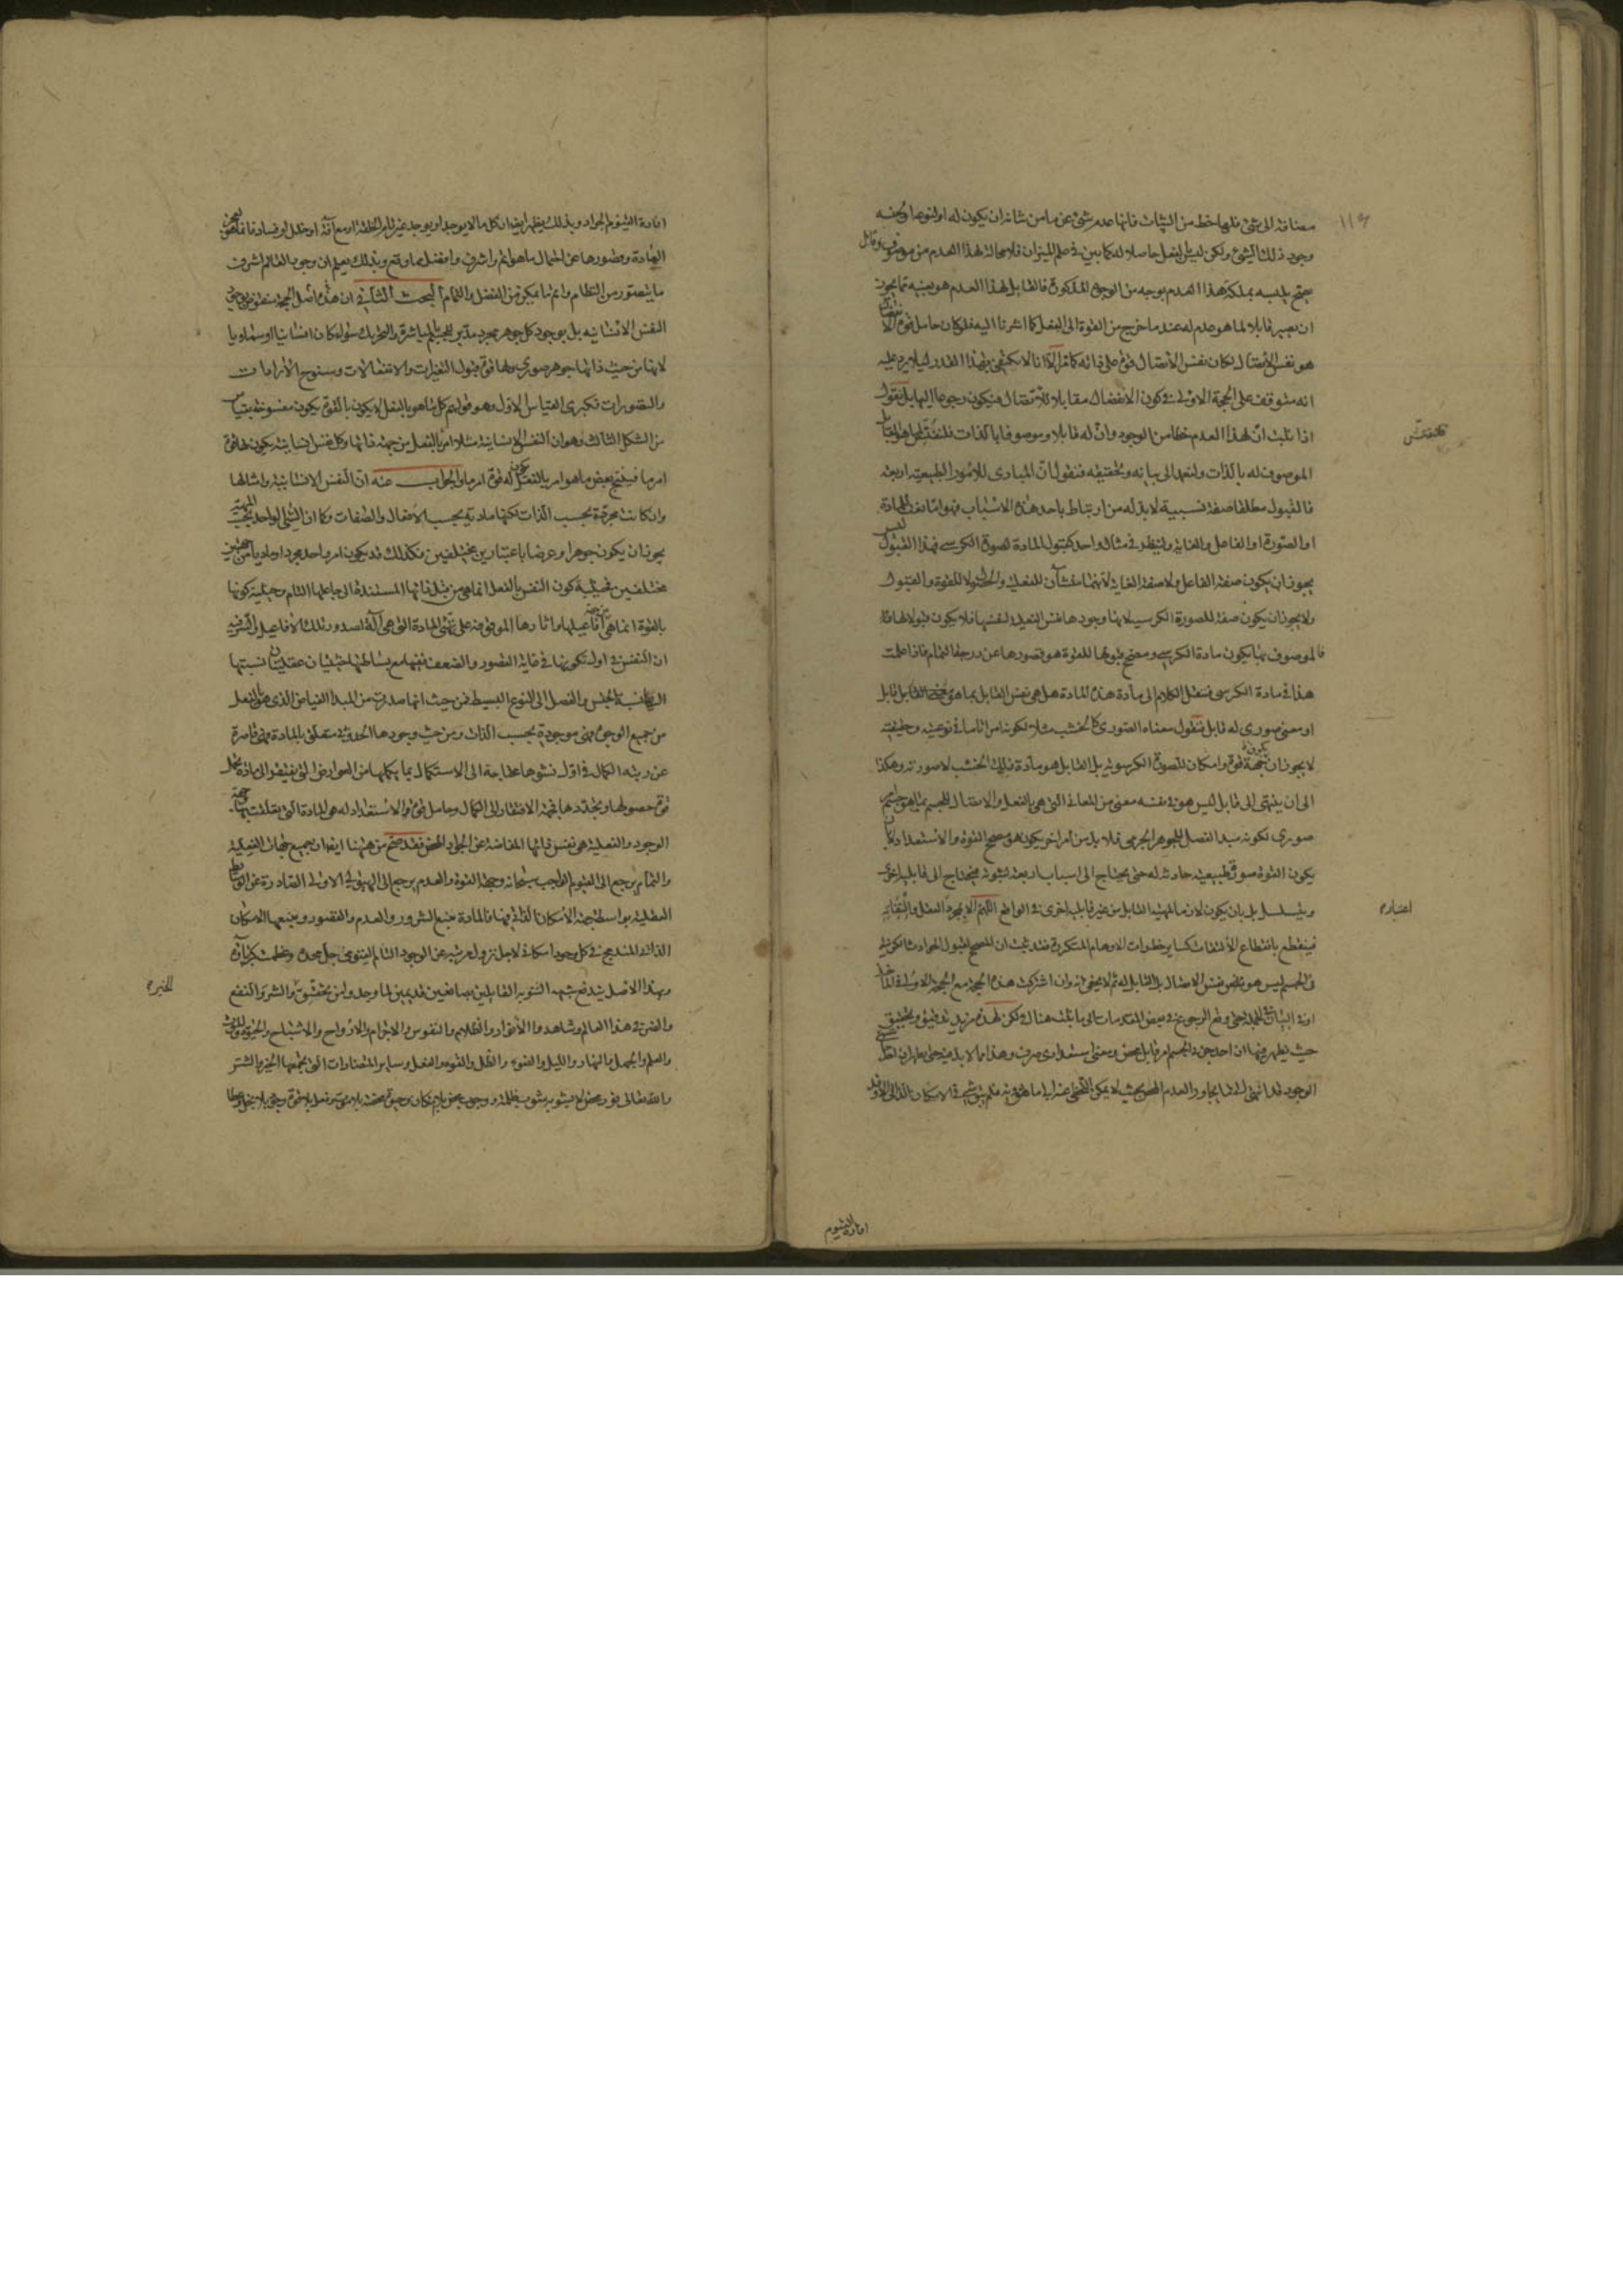 مضافة الى شئ فلها حظ من الثبات فانها عدم شئ عن ما من شانه ان يكون له او لنوعه او لجنسه
وجود ذلك الشئ ولكن ليس بالفعل حاصلا له كما بين في علم الميزان فلا محالة لهذا العدم من موصوف وقابل
هذا العدم بوجه من الوجوه المذكورة فالقابل لهذا العدم هو بعينه مما يجوز
ان يصير قابلا لما هو عدم له عند ما خرج من القوة الى الفعل كما اشرنا اليه فلو كان حامل قوة الاتصال
هو نفس الاتصال لكان نفس الاتصال قوة على ذاته كما مر الا انا لا نكتفى بهذا القدر لئلا يرد عليه
انه متوقف على الحجة الاولى في كون الانفصال مقابلا للاتصال فيكون رجوعا اليها بل نقول
اذا ثبت ان لهذا العدم حظا من الوجود وان له قابلا وموصوفا بالذات فلنفتش
الموصوف له بالذات ولنعد الى بيانه وتحقيقه فنقول ان المبادى للامور الطبيعية اربعة
فالقبول مطلقا صفة نسبية لا بد له من ارتباط باحد هذه الاسباب فهو اما نفس المادة
او الصورة او الفاعل والغاية ولننظر في مثال واحد كقبول المادة لصورة الكرسى فهذا القبول ليس
يجوز ان يكون صفة الفاعل ولا صفة الغاية لانهما منشآن للفعلية والحصول لا للقوة والقبول
ولا يجوز ان يكون صفة للصورة الكرسية لانها وجودها نفس الفعلية لنفسها فلا يكون قبولا لها فاذا
فالموصوف بها يكون مادة الكرسى ومصحح قبولها للقوة هو قصورها عن درجة التمام فاذا علمت
هذا في مادة الكرسى فننقل الكلام الى مادة هذه المادة هل هى نفس القابل بما هو قابل
او معنى صورى له قابل فنقول معناه الصورى كالخشب مثلا لكونه امرا تاما في نوعيته وحقيقته
لا يجوز ان يكون جهة قوة وامكان للصورة الكرسوية بل القابل هو مادة ذلك الخشب لا صورته وهكذا
الى ان ينتهى الى قابل ليس هو في نفسه معنى من المعانى التى هى بالفعل والاتصال للجسم بما هو جسم
صورى لكونه مبدأ الفصل للجوهر الجرمى فلا بد من امر اخر يكون هو مصحح القوة والاستعداد
يكون القوة صورة طبيعية حادثة له حتى يحتاج الى اسباب اربعة لثبوته فيحتاج الى قابلية اخرى
ويتسلسل بل بان يكون لازما لمهية القابل من غير قابلية اخرى في الواقع اللهم الا بمجرد العقل
فينقطع بانقطاع الالتفات كسائر خطورات الاوهام المتكررة فقد ثبت ان المصحح لقبول الحوادث
في الجسم ليس هو نفس الاتصال بل القابل له ثم لا يخفى انه وان اشتركت هذه الحجة مع الحجة الاولى في
وقع الرجوع في بعض المقدمات الى ما ثبت هناك لكن لهذه مزيد تدقيق وتحقيق
حيث يظهر منها ان احد جزئى الجسم امر قابل محض ومعنى استعدادى صرف وهذا مما لا بد منه حتى يظهر ان
الوجود قد انتهى الى ما يجاور العدم المحض بحيث لا يمكن
قلنفتش
اعتباره
افادة القيوم
افادة القيوم الجواد وبذلك يظهر ايضا ان كل ما لا يوجد او يوجد غير تام الخلقة او مع آفة او خلل او فساد فانما هو
المادة وقصورها عن احتمال ما هو اتم واشرف وافضل مما وقع وبذلك يعلم ان وجود العالم اشرف
ما يتصور من النظام واتم ما يمكن من الفضل والتمام البحث الثانى ان هذه اصل الحجة منقوض بوجود
النفس الانسانية بل بوجود كل جوهر مجرد مدبر للجسم بالمباشرة والتحريك سواء كان انسانيا او سماويا
لانها من حيث ذاتها جوهر صورى ولها قوة قبول التغيرات والانفعالات وسنوح الارادات
والتصورات فكبرى القياس الاول وهو قولهم كل ما هو بالفعل لا يكون بالقوة يكون منسوخة بقياس
من الشكل الثالث وهو ان النفس الانسانية مثلا امر بالفعل من جهة ذاتها وكل نفس انسانية يكون لها قوة
امر ما فينتج بعض ما هو امر بالفعل يكون له قوة امر ما والجواب عنه ان النفس الانسانية وامثالها
وان كانت مجردة بحسب الذات لكنها مادية بحسب الافعال والصفات وكما ان الشئ الواحد
يجوز ان يكون جوهرا وعرضا باعتبارين مختلفين فكذلك قد يكون امر واحد مجردا وماديا من جهتين
مختلفين فحيثية كون النفس بالفعل انما هى من قبل ذاتها المستندة الى جاعلها التام وحيثية كونها
بالقوة انما هى من جهة افاعيلها واثارها الموقوفة على تهيؤ المادة التى هى آلة لصدور تلك الافاعيل والسر فيه
ان النفس في اول تكونها في غاية القصور والضعف ففيها مع بساطتها حيثيتان عقليتان نسبتها
اليها نسبة الجنس والفصل الى النوع البسيط فمن حيث انها صدرت من المبدأ الفياض الذى هو بالفعل
من جميع الوجوه فهى موجودة بحسب الذات ومن حيث وجودها الحدوثى متعلق بالمادة فهى قاصرة
عن رتبة الكمال في اول نشوها محتاجة الى الاستكمال بما يكملها من العوارض التى يفتقر الى مادة تحمل
قوة حصولها وتجددها فجهة الافتقار الى الكمال وحامل قوة والاستعداد له هى المادة التى تعلقت بها وجهة
الوجود والفعلية هى نفس ذاتها المفاضة عن الجواد المحض فقد صح من ههنا ايضا ان جميع جهات الفعلية
والتمام يرجع الى القيوم الواجب سبحانه وجهة القوة والعدم يرجع الى الهيولى الاولى الصادرة عن الوسائط
العقلية بواسطة جهة الامكان الذاتى فيها فالمادة منبع الشرور والعدم والقصور ومنبعها الامكان
الذاتى المندمج في كل وجود امكانى لاجل نزول مرتبته عن الوجود التام القيومى جل مجده وعظمت كبرياؤه
وبهذا الاصل يندفع شبهة الثنوية القائلين بصانعين قديمين لما وجدوا من تحقق الشر والنفع
والضر في هذا العالم وشاهدوا الانوار والظلام والنفوس والاجرام والارواح والاشباح والحيوة والموت
والعلم والجهل والنهار والليل والضوء والظل والقوة والفعل وسائر المتضادات التى يجمعها الخير والشر
والله تعالى نور محض لا يشوبه شوب ظلمة ووجوب بحت بلا امكان
الخيره